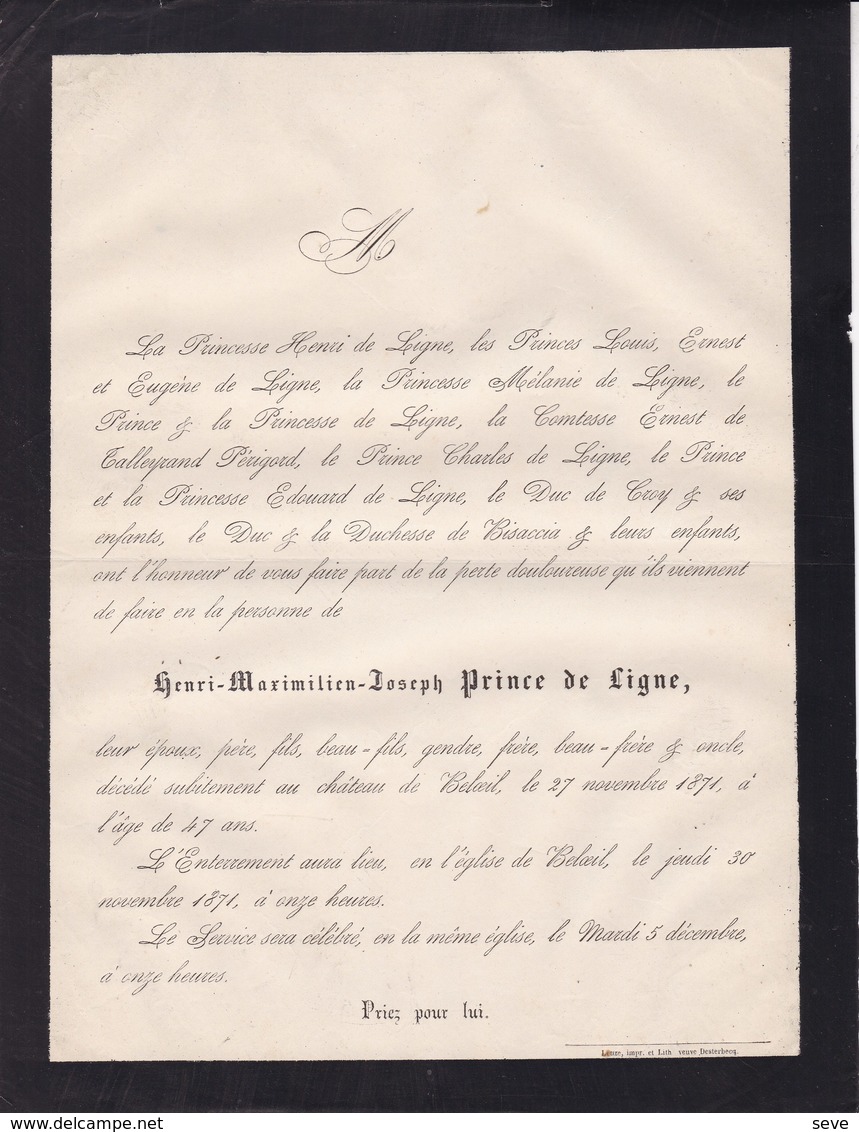 M
La Princesse Henri de Ligne, les Princes Louis, Ernest
et Eugène de Ligne, la Princesse Mélanie de Ligne, le
Prince & la Princesse de Ligne, la Comtesse Ernest de
Talleyrand Périgord, le Prince Charles de Ligne, le Prince
et la Princesse Edouard de Ligne, le Duc de Croy & ses
enfants, le Duc & la Duchesse de Bisaccia & leurs enfants,
ont l'honneur de vous faire part de la perte douloureuse qu'ils viennent
de faire en la personne de
Henri-Maximilien-Joseph Prince de Ligne,
leur époux, père, fils, beau-fils, gendre, frère, beau-frère & oncle,
décédé subitement au château de Belœil, le 27 novembre 1871, à
l'âge de 47 ans.
L'Enterrement aura lieu, en l'église de Belœil, le jeudi 30
novembre 1871, à onze heures.
Le Service sera célébré, en la même église, le Mardi 5 décembre,
à onze heures.
Priez pour lui.
Leuze, impr. et Lith veuve Desterbecq.
www.delcampe.net
seve